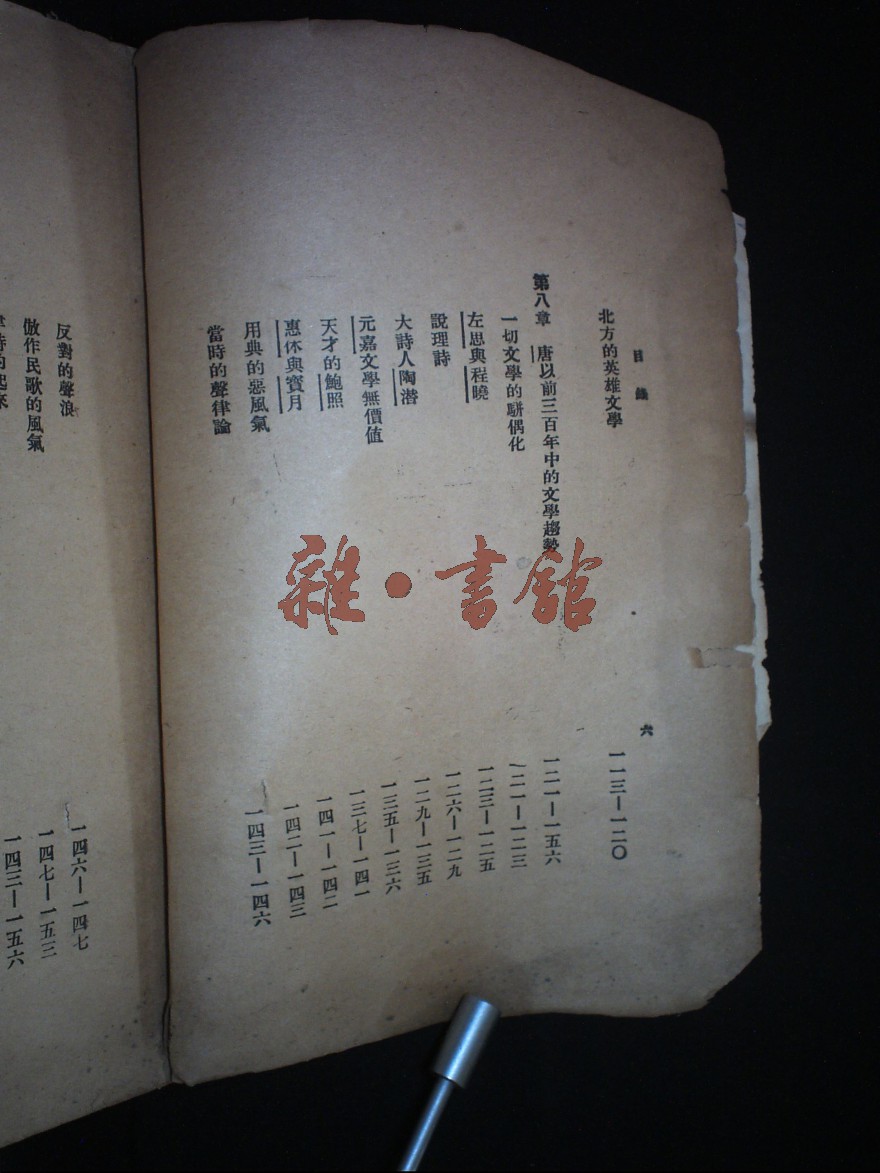 目錄 六
北方的英雄文學 一一三—一二〇
第八章 唐以前三百年中的文學趨勢 一二一—一五六
一切文學的駢偶化 一二一—一二三
左思與程曉 一二三—一二五
說理詩 一二六—一二九
大詩人陶潛 一二九—一三五
元嘉文學無價值 一三五—一三六
天才的鮑照 一三七—一四一
惠休與寶月 一四一—一四二
用典的惡風氣 一四二—一四三
當時的聲律論 一四三—一四六
反對的聲浪 一四六—一四七
倣作民歌的風氣 一四七—一五三
詩的起來 一四三—一五六
雜·書館